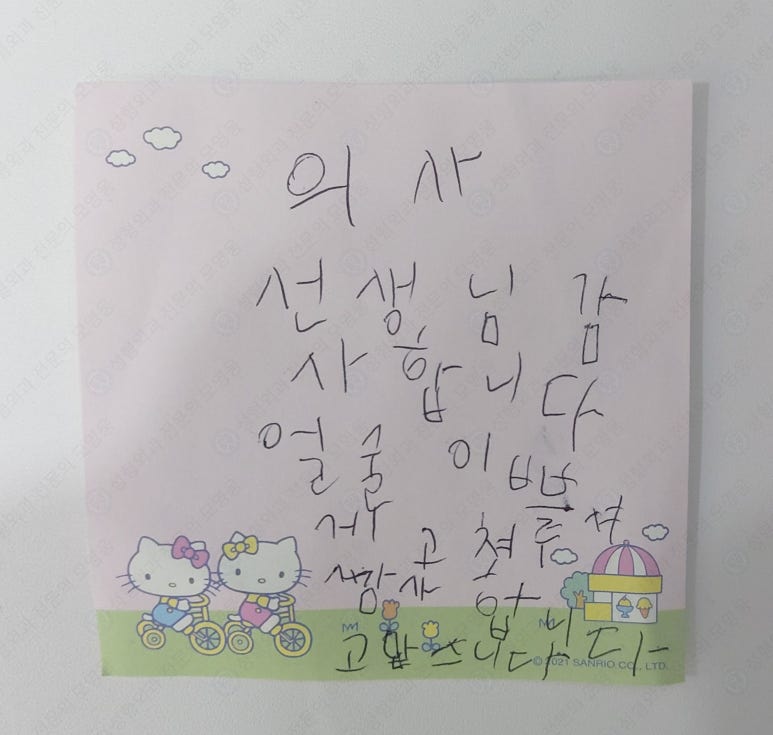 의 사
선 생 님 감
사 합 니 다
얼 굴 이 쁘
게 고 쳐 주 셔
감 사 합 니 다
고 맙 스 니 다
© 2021 SANRIO CO., LTD.